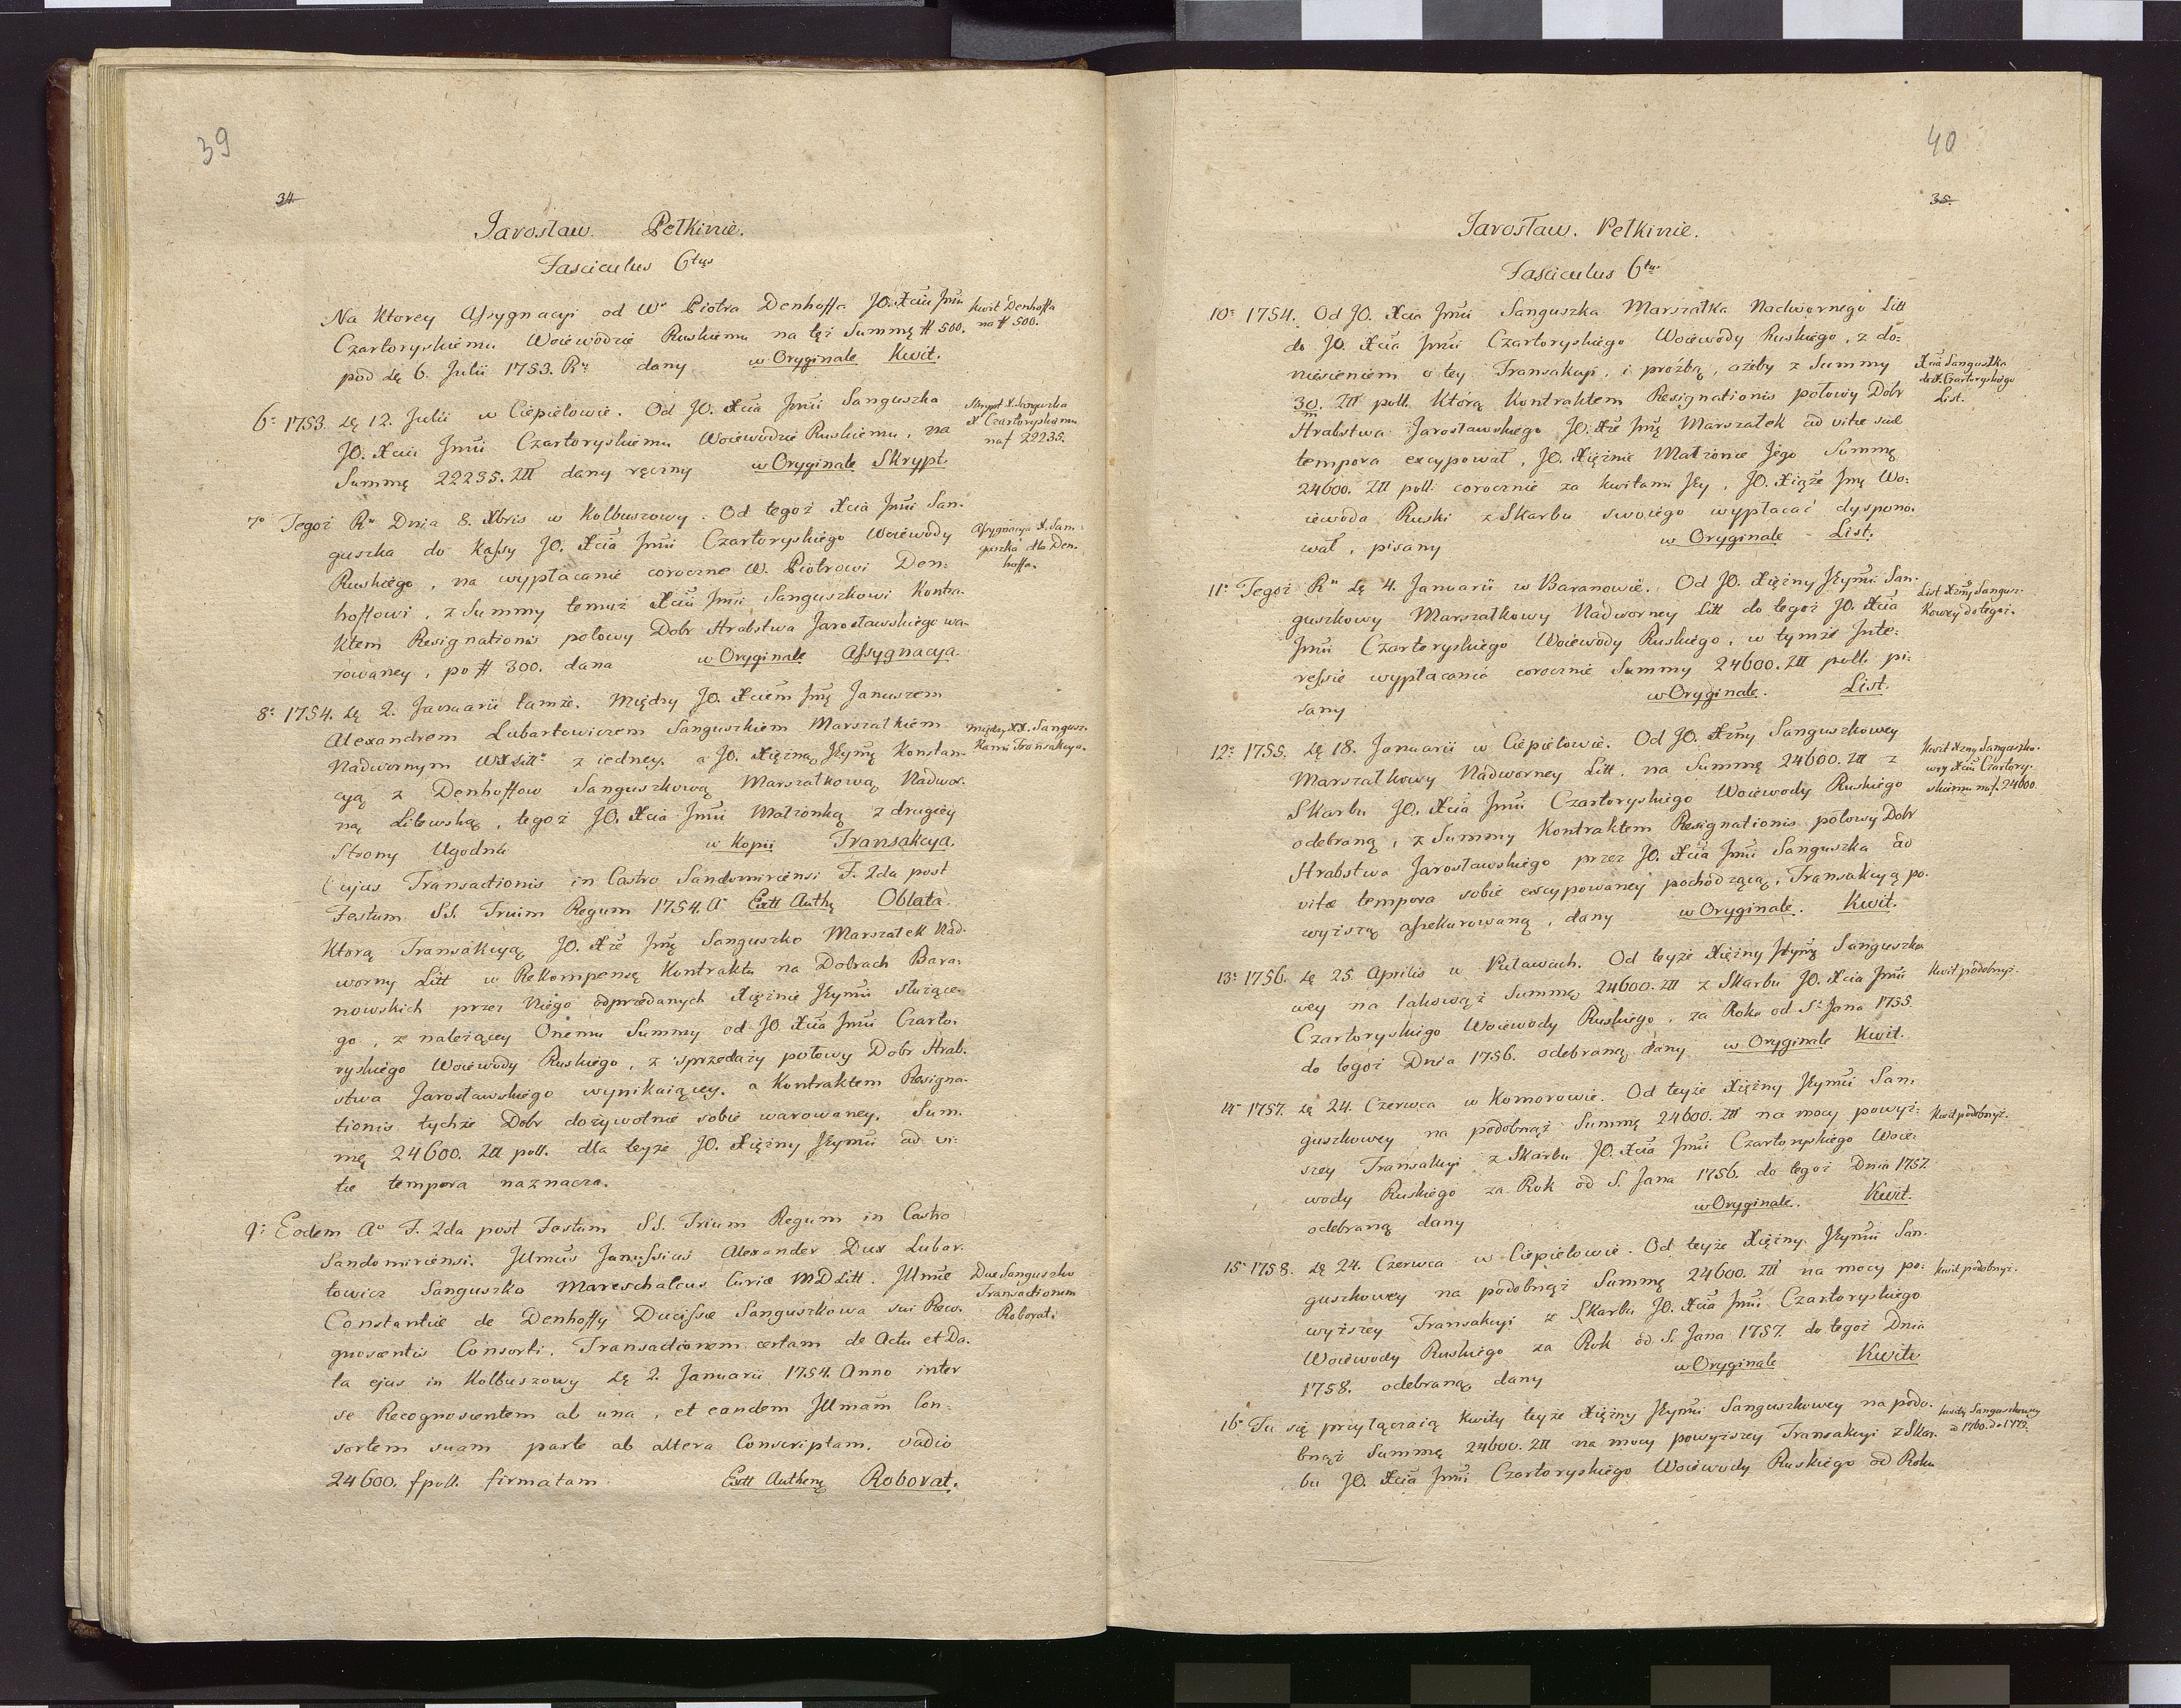 39
34
Jarosław. Pełkinie.
Fasciculus 6tus
Na Ktorey Assygnacyi od Wo Piotra Denhoffa JO. Xciu Jmci
Czartoryskiemu Woiewodzie Ruskiemu na tęż Summę # 500.
pod dę 6. Julii 1753. Ru dany w Oryginale Kwit.
Kwit Denhoffa
na # 500.
6o 1753. dę 12. Julii w Ciepielowie. Od JO. Xcia Jmci Sanguszka
JO. Xciu Jmci Czartoryskiemu Woiewodzie Ruskiemu, na
Summę 22235. Złł dany ręczny w Oryginale Skrypt.
Skrypt X. Sanguszka
X. Czartoryskiemu
na f 22235.
7o Tegoż Ru Dnia 8. Xbris w Kolbuszowy. Od tegoż Xcia Jmci San-
guszka do Kassy JO. Xcia Jmci Czartoryskiego Woiewody
Ruskiego, na wypłacanie coroczne W. Piotrowi Den-
hoffowi, z Summy temuż Xciu Jmci Sanguszkowi Kontra-
ktem Resignationis połowy Dobr Hrabstwa Jarosławskiego wa-
rowaney, po # 300. dana w Oryginale Assygnacya.
Assygnacya X. San-
guszka dla Den-
hoffa.
8o 1754. dę 2. Januarii tamże. Między JO. Xciem Jmę Januszem
Alexandrem Lubartowiczem Sanguszkiem Marszałkiem
Nadwornym WXLitto z iedney, a JO. Xiężną Jeymę Konstan-
cyą z Denhoffow Sanguszkową Marszałkową Nadwor-
ną Litewską, tegoż JO. Xcia Jmci Małżonką z drugiey
Strony Ugodna w Kopii Transakcya.
między XX. Sangusz-
kami Transakcya.
Cujus Transactionis in Castro Sandomiriensi F. 2da post
Festum S.S. Trium Regum 1754. Ao Extt Authę Oblata.
Ktorą Transakcyą JO. Xże Jmę Sanguszko Marszałek Nad-
worny Litt w Rekompensę Kontraktu na Dobrach Bara-
nowskich przez Niego odprzedanych Xiężnie Jeymci służące-
go, z należącey Onemu Summy od JO. Xcia Jmci Czarto-
ryskiego Woiewody Ruskiego, z sprzedaży połowy Dobr Hrab-
stwa Jarosławskiego wynikaiącey, a Kontraktem Resigna-
tionis tychże Dobr dożywotnie sobie warowaney, Sum-
mę 24600. Złł poll. dla teyże JO. Xiężny Jeymci ad vi-
tæ tempora naznacza.
9o Eodem Ao F. 2da post Festum S.S. Trium Regum in Castro
Sandomiriensi. Jllmus Janussius Alexander Dux Lubar-
towicz Sanguszko Mareschalcus Curiæ MDLitt. Jllmæ
Constantiæ de Denhoffy Ducissæ Sanguszkowa sui Reco-
gnoscentis Consorti, Transactionem certam de Actu et Da-
ta ejus in Kolbuszowy dę 2. Januarii 1754. Anno inter
se Recognoscentem ab una, et eandem Jllmam Con-
sortem suam parte ab altera Conscriptam, vadio
24600. f poll. firmatam Extt Authenę Roborat.
Dux Sanguszko
Transactionem
Roborat.
40
35.
Jarosław. Pełkinie.
Fasciculus 6tus
10o 1754. Od JO. Xcia Jmci Sanguszka Marszałka Nadwornego Litt
do JO. Xcia Jmci Czartoryskiego Woiewody Ruskiego, z do-
niesieniem o tey Transakcyi, i proźbą, ażeby z Summy
30. m Złł poll. Którą Kontraktem Resignationis połowy Dobr
Hrabstwa Jarosławskiego JO. Xże Jmę Marszałek ad vitæ suæ
tempora excypował, JO. Xiężnie Małżonce Jego Summę
24600. Złł poll. corocznie za kwitami Jey, JO. Xiąże Jmę Wo-
iewoda Ruski z Skarbu swoiego wypłacać dyspono-
wał, pisany w Oryginale List.
Xcia Sanguszka
do X. Czartoryskiego
List.
11o Tegoż Ru dę 4. Januarii w Baranowie. Od JO. Xiężny Jeymci San-
guszkowy Marszałkowy Nadworney Litt do tegoż JO. Xcia
Jmci Czartoryskiego Woiewody Ruskiego, w tymże Inte-
ressie wypłacania corocznie Summy 24600. Złł poll. pi-
sany w Oryginale. List.
List Xzny Sangusz-
kowey do tegoż.
12o 1755. dę 18. Januarii w Ciepielowie. Od JO. Xzny Sanguszkowey
Marszałkowy Nadworney Litt. na Summę 24600. Złł z
Skarbu JO. Xcia Jmci Czartoryskiego Woiewody Ruskiego
odebraną, z Summy Kontraktem Resignationis połowy Dobr
Hrabstwa Jarosławskiego przez JO. Xcia Jmci Sanguszka ad
vitæ tempora sobie excypowaney pochodzącą, Transakcyą po-
wyższą assekurowaną, dany w Oryginale. Kwit.
Kwit Xzny Sanguszko-
wey Xciu Czartory-
skiemu na f. 24600.
13o 1756. dę 25. Aprilis w Puławach. Od teyże Xiężny Jeymę Sanguszko-
wey na takowąż Summę 24600. Złł z Skarbu JO. Xcia Jmci
Czartoryskiego Woiewody Ruskiego, za Roku od S. Jana 1755.
do tegoż Dnia 1756. odebraną dany w Oryginale Kwit.
Kwit podobnyż.
14o 1757. dę 24. Czerwca w Komorowie. Od teyże Xiężny Jeymci San-
guszkowey na podobnąż Summę 24600. Złł na mocy powyż-
szey Transakcyi z Skarbu JO. Xcia Jmci Czartoryskiego Woie-
wody Ruskiego za Rok od S. Jana 1756. do tegoż Dnia 1757.
odebraną dany w Oryginale. Kwit.
Kwit podobnyż.
15o 1758. dę 24. Czerwca w Ciepielowie. Od teyże Xiężny Jeymci San-
guszkowey na podobnąż Summę 24600. Złł na mocy po-
wyższey Transakcyi z Skarbu JO. Xcia Jmci Czartoryskiego
Woiewody Ruskiego za Rok od S. Jana 1757. do tegoż Dnia
1758. odebraną dany w Oryginale Kwit
Kwit podobnyż.
16o Tu się przyłączaią Kwity teyże Xiężny Jeymci Sanguszkowey na podo-
bnąż Summę 24600. Złł na mocy powyższey Transakcyi z Skar-
bu JO. Xcia Jmci Czartoryskiego Woiewody Ruskiego od Roku
Kwity Sanguszkowey